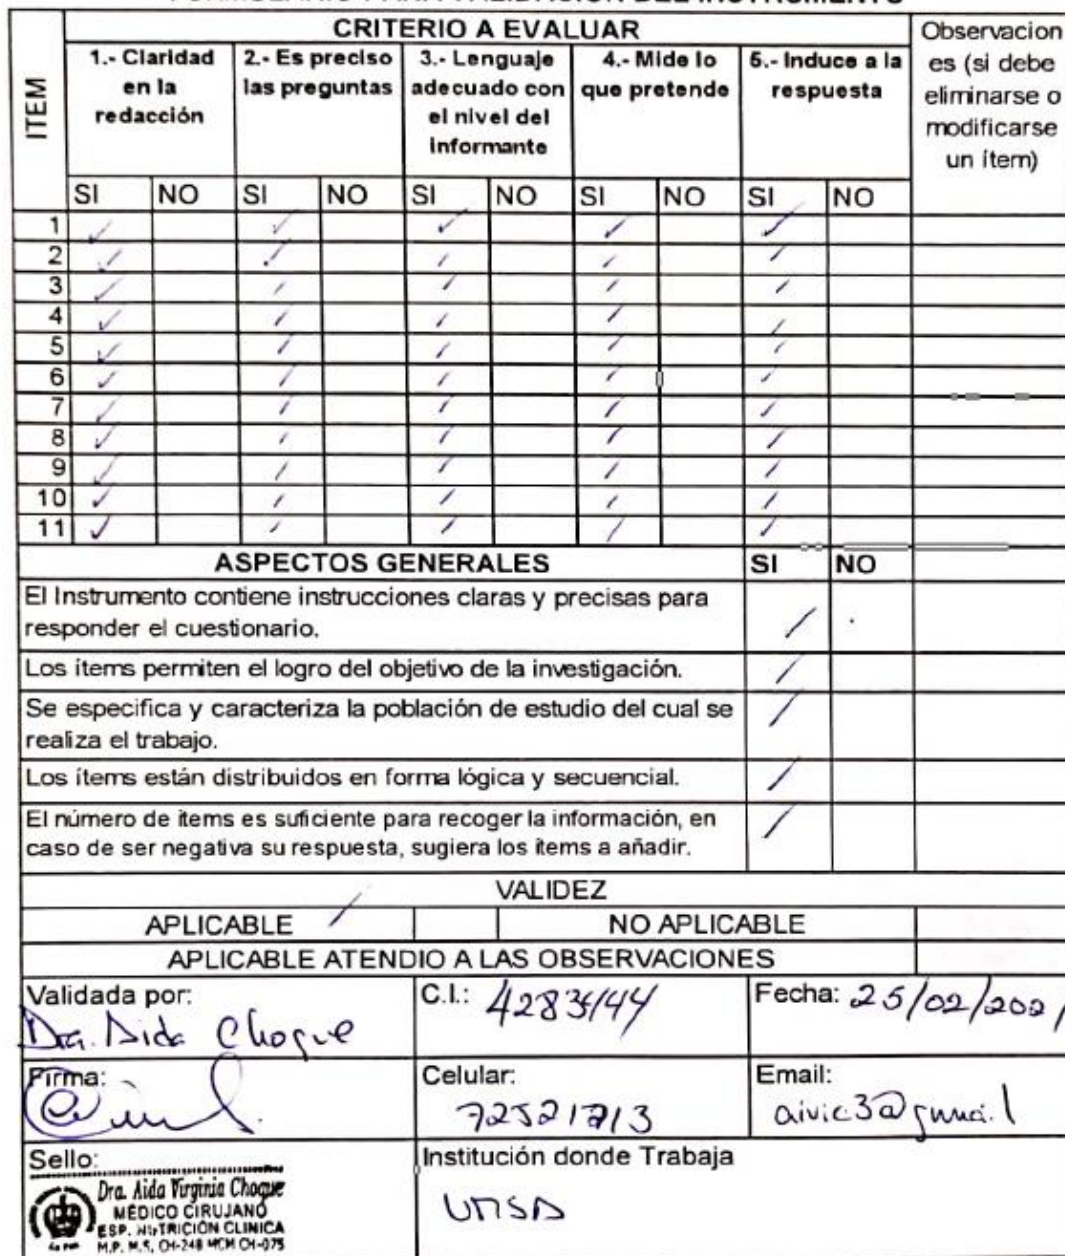 FORMULARIO PARA VALIDACIÓN DEL INSTRUMENTO
CRITERIO A EVALUAR
ITEM
1.- Claridad en la redacción
2.- Es preciso las preguntas
3.- Lenguaje adecuado con el nivel del informante
4.- Mide lo que pretende
5.- Induce a la respuesta
Observaciones (si debe eliminarse o modificarse un ítem)
SI NO SI NO SI NO SI NO SI NO
1 ✓ ✓ ✓ ✓ ✓
2 ✓ ✓ ✓ ✓ ✓
3 ✓ ✓ ✓ ✓ ✓
4 ✓ ✓ ✓ ✓ ✓
5 ✓ ✓ ✓ ✓ ✓
6 ✓ ✓ ✓ ✓ ✓
7 ✓ ✓ ✓ ✓ ✓
8 ✓ ✓ ✓ ✓ ✓
9 ✓ ✓ ✓ ✓ ✓
10 ✓ ✓ ✓ ✓ ✓
11 ✓ ✓ ✓ ✓ ✓
ASPECTOS GENERALES SI NO
El Instrumento contiene instrucciones claras y precisas para
responder el cuestionario. ✓
Los ítems permiten el logro del objetivo de la investigación. ✓
Se especifica y caracteriza la población de estudio del cual se
realiza el trabajo. ✓
Los ítems están distribuidos en forma lógica y secuencial. ✓
El número de ítems es suficiente para recoger la información, en
caso de ser negativa su respuesta, sugiera los ítems a añadir. ✓
VALIDEZ
APLICABLE ✓ NO APLICABLE
APLICABLE ATENDIO A LAS OBSERVACIONES
Validada por:
Dra. Aida Choque
C.I.:
Fecha: 25/02/2021
Firma:
Celular:
Email:
Sello:
Dra. Aida Virginia Choque
MÉDICO CIRUJANO
ESP. NUTRICIÓN CLINICA
M.P. M.S. CH-248 MCM CH-075
Institución donde Trabaja
UMSA